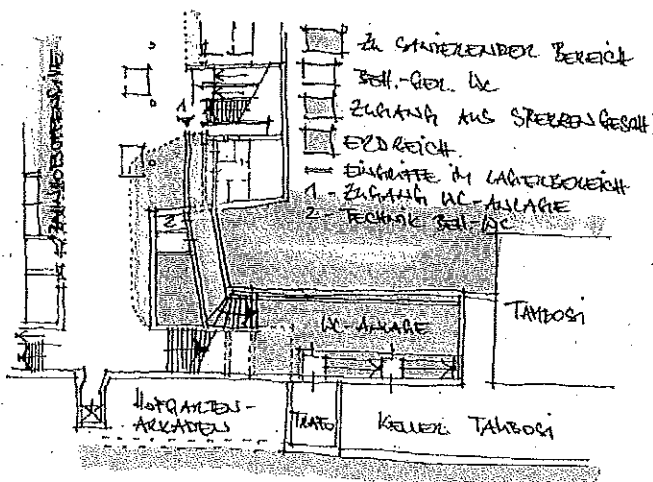 ZU SANIERENDER BEREICH
BEH.-GER. WC
ZUGANG AUS SPERRENGESCH.
ERDREICH
EINGRIFFE IM LAGERBEREICH
1 - ZUGANG WC-ANLAGE
2 - TECHNIK BEH-WC
1
2
TAMBOSI
WC-ANLAGE
HOFGARTEN-
ARKADEN
TRAFO
KELLER TAMBOSI